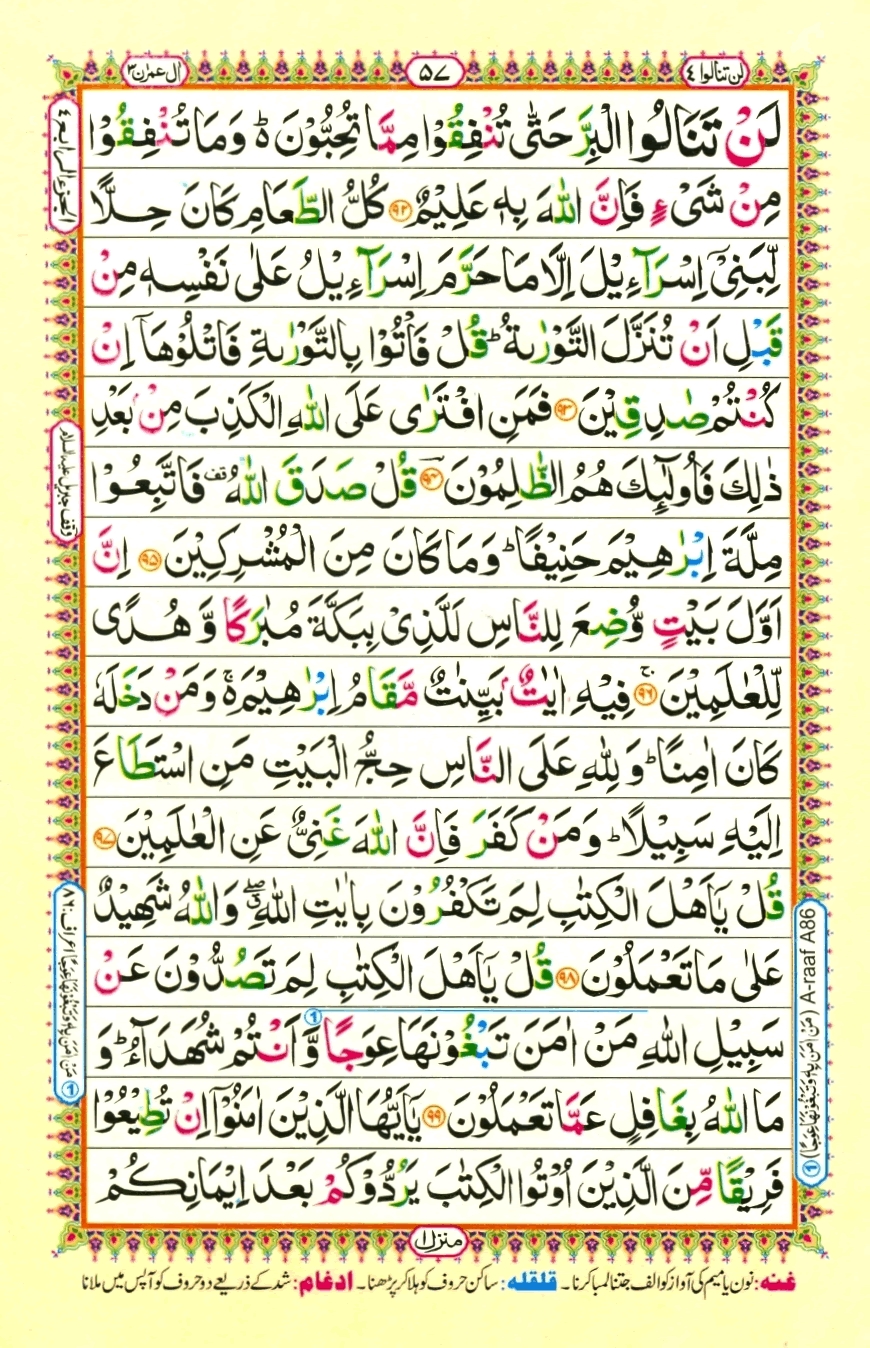 لن تنالوا ٤
۵۷
اٰل عمرٰن ۳
لَنْ تَنَالُوا الْبِرَّ حَتّٰى تُنْفِقُوْا مِمَّا تُحِبُّوْنَ ؕ وَمَا تُنْفِقُوْا
مِنْ شَیْءٍ فَاِنَّ اللّٰهَ بِهٖ عَلِیْمٌ ﴿۹۲﴾ كُلُّ الطَّعَامِ كَانَ حِلًّا
لِّبَنِیْۤ اِسْرَآءِیْلَ اِلَّا مَا حَرَّمَ اِسْرَآءِیْلُ عَلٰى نَفْسِهٖ مِنْ
قَبْلِ اَنْ تُنَزَّلَ التَّوْرٰىةُ ؕ قُلْ فَاْتُوْا بِالتَّوْرٰىةِ فَاتْلُوْهَاۤ اِنْ
كُنْتُمْ صٰدِقِیْنَ ﴿۹۳﴾ فَمَنِ افْتَرٰى عَلَى اللّٰهِ الْكَذِبَ مِنْ بَعْدِ
ذٰلِكَ فَاُولٰٓىِٕكَ هُمُ الظّٰلِمُوْنَ ﴿۹۴﴾ؔ قُلْ صَدَقَ اللّٰهُ ۫ قف فَاتَّبِعُوْا
مِلَّةَ اِبْرٰهِیْمَ حَنِیْفًا ؕ وَمَا كَانَ مِنَ الْمُشْرِكِیْنَ ﴿۹۵﴾ اِنَّ
اَوَّلَ بَیْتٍ وُّضِعَ لِلنَّاسِ لَلَّذِیْ بِبَكَّةَ مُبٰرَكًا وَّ هُدًى
لِّلْعٰلَمِیْنَ ﴿۹۶﴾ۚ فِیْهِ اٰیٰتٌۢ بَیِّنٰتٌ مَّقَامُ اِبْرٰهِیْمَ ۚ۬ وَمَنْ دَخَلَهٗ
كَانَ اٰمِنًا ؕ وَلِلّٰهِ عَلَى النَّاسِ حِجُّ الْبَیْتِ مَنِ اسْتَطَاعَ
اِلَیْهِ سَبِیْلًا ؕ وَمَنْ كَفَرَ فَاِنَّ اللّٰهَ غَنِیٌّ عَنِ الْعٰلَمِیْنَ ﴿۹۷﴾
قُلْ یٰۤاَهْلَ الْكِتٰبِ لِمَ تَكْفُرُوْنَ بِاٰیٰتِ اللّٰهِ ۖۗ وَاللّٰهُ شَهِیْدٌ
عَلٰى مَا تَعْمَلُوْنَ ﴿۹۸﴾ قُلْ یٰۤاَهْلَ الْكِتٰبِ لِمَ تَصُدُّوْنَ عَنْ
سَبِیْلِ اللّٰهِ مَنْ اٰمَنَ تَبْغُوْنَهَا عِوَجًا ① وَّاَنْتُمْ شُهَدَآءُ ؕ وَ
مَا اللّٰهُ بِغَافِلٍ عَمَّا تَعْمَلُوْنَ ﴿۹۹﴾ یٰۤاَیُّهَا الَّذِیْنَ اٰمَنُوْۤا اِنْ تُطِیْعُوْا
فَرِیْقًا مِّنَ الَّذِیْنَ اُوْتُوا الْكِتٰبَ یَرُدُّوْكُمْ بَعْدَ اِیْمَانِكُمْ
منزل ۱
الجزء الرابع ٤
وقف جبریل علیہ السلام
① مَنْ اٰمَنَ بِهٖ وَتَبْغُوْنَهَا عِوَجًا اعراف: ۸۶
① (مَنْ اٰمَنَ بِهٖ وَتَبْغُوْنَهَا عِوَجًا) A-raaf A86
غنہ: نون یا میم کی آواز کو الف جتنا لمبا کرنا۔ قلقلہ: ساکن حروف کو ہلا کر پڑھنا۔ ادغام: شد کے ذریعے دو حروف کو آپس میں ملانا